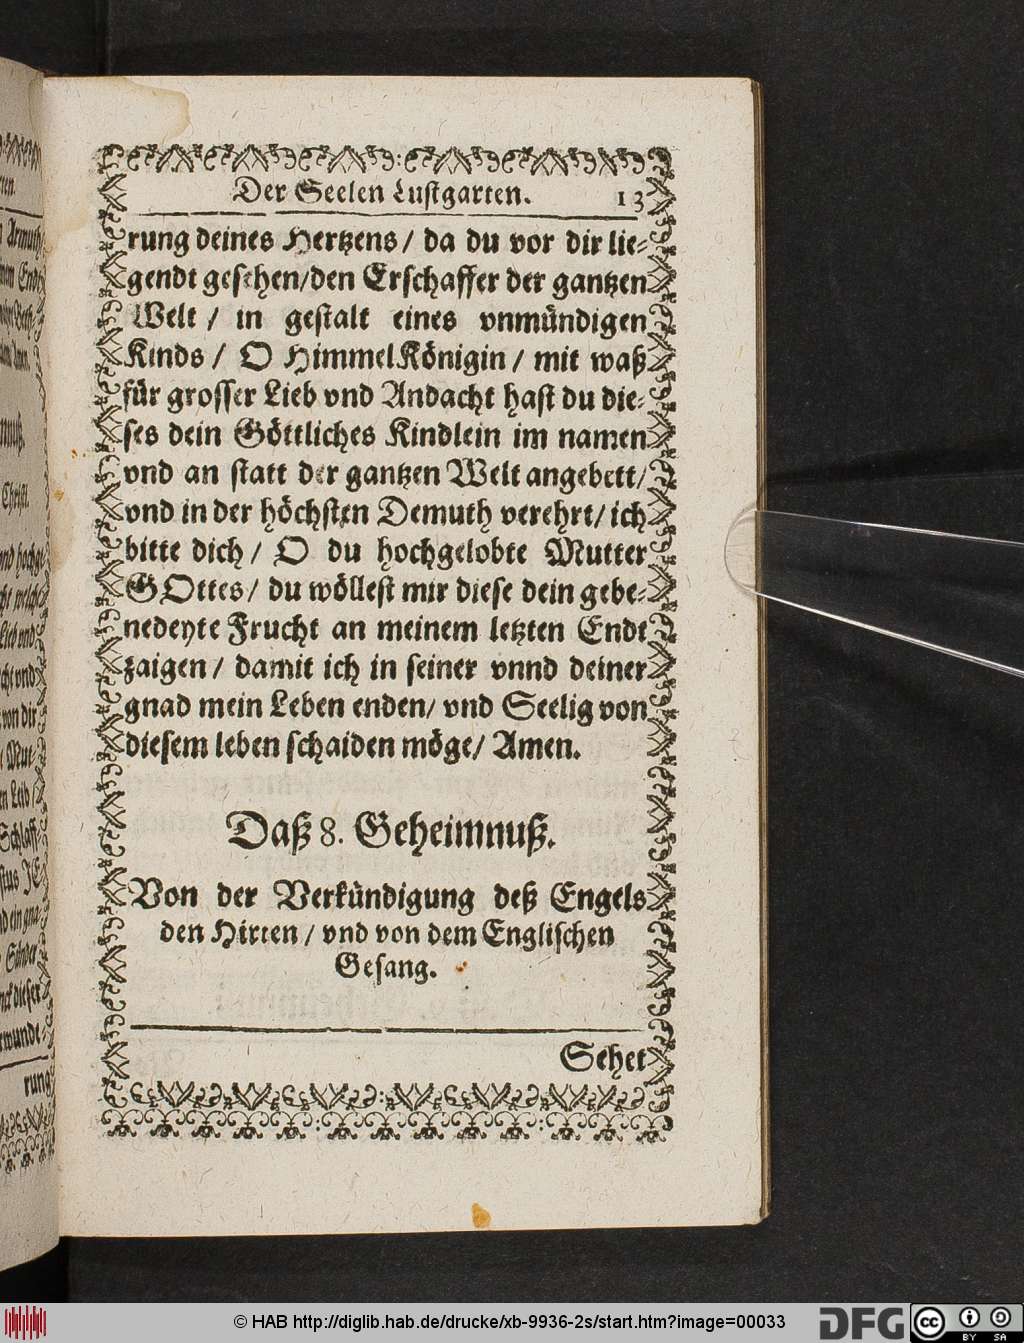 Der Seelen Lustgarten. 13
rung deines Hertzens / da du vor dir lie-
gendt gesehen/den Erschaffer der gantzen
Welt / in gestalt eines vnmündigen
Kinds / O HimmelKönigin / mit waß
für grosser Lieb vnd Andacht hast du die-
ses dein Göttliches Kindlein im namen
vnd an statt der gantzen Welt angebett/
vnd in der höchsten Demuth verehrt/ ich
bitte dich / O du hochgelobte Mutter
GOttes / du wöllest mir diese dein gebe-
nedeyte Frucht an meinem letzten Endt
zaigen / damit ich in seiner vnnd deiner
gnad mein Leben enden/ vnd Seelig von
diesem leben schaiden möge/ Amen.
Daß 8. Geheimnuß.
Von der Verkündigung deß Engels
den Hirten / vnd von dem Englischen
Gesang.
Sehet
rung
© HAB http://diglib.hab.de/drucke/xb-9936-2s/start.htm?image=00033
DFG
cc BY SA